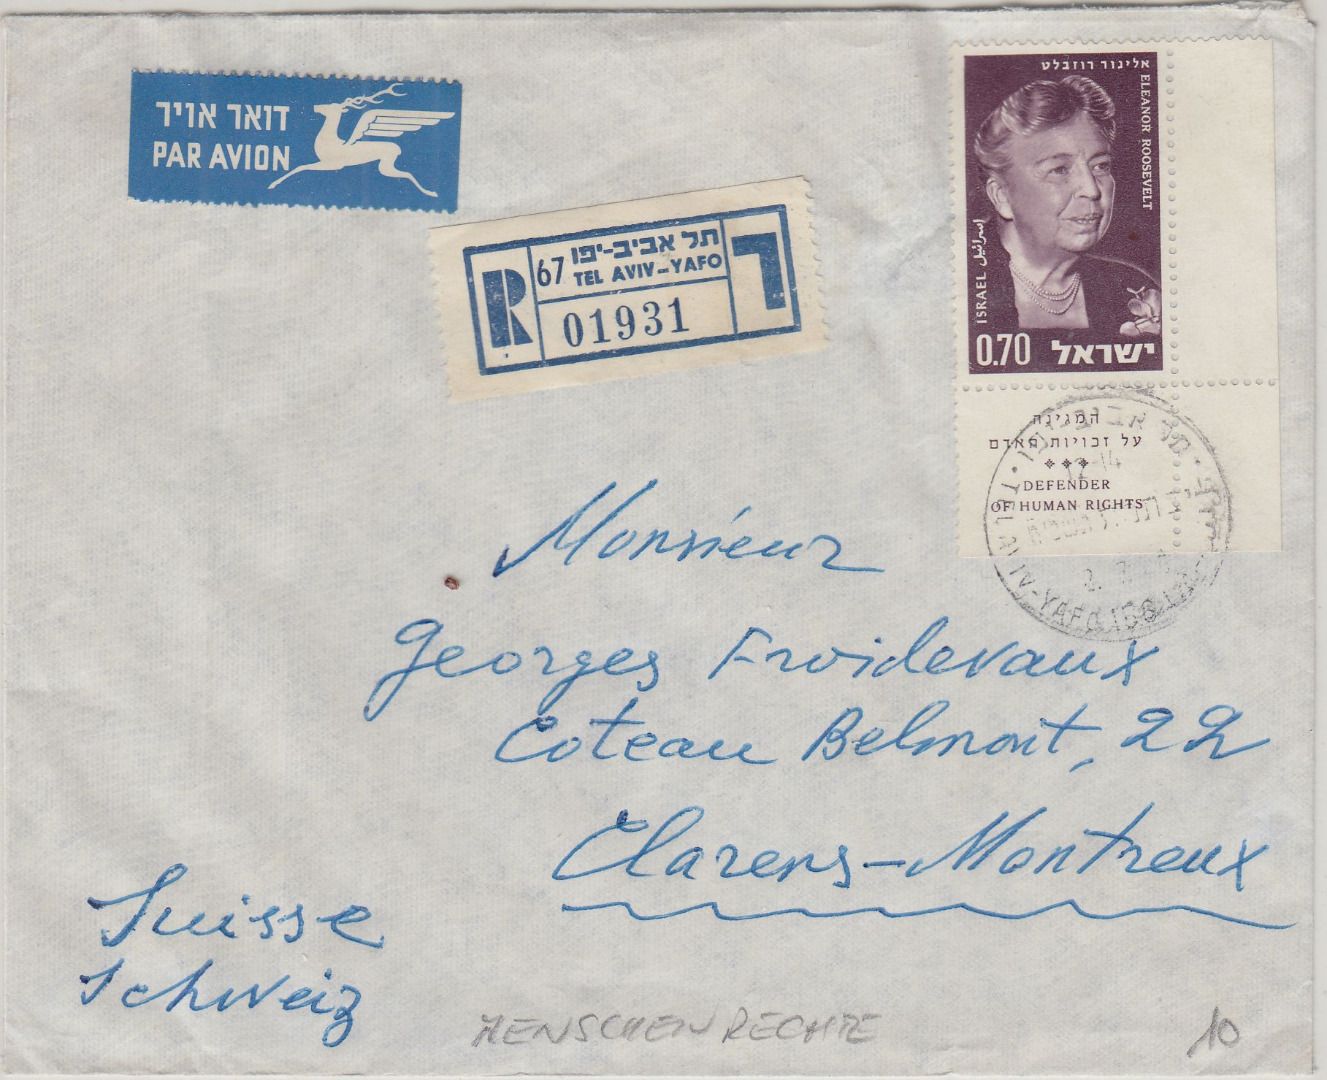 דואר אויר
PAR AVION
R
67
תל אביב-יפו
TEL AVIV-YAFO
ר
01931
אלינור רוזבלט
ELEANOR ROOSEVELT
ISRAEL اسرائيل
0.70 ישראל
המגינה
על זכויות האדם
DEFENDER
OF HUMAN RIGHTS
12-14
TEL AVIV-YAFO
Monsieur
Georges Froidevaux
Coteau Belmont, 22
Clarens-Montreux
Suisse
Schweiz
MENSCHENRECHTE
10